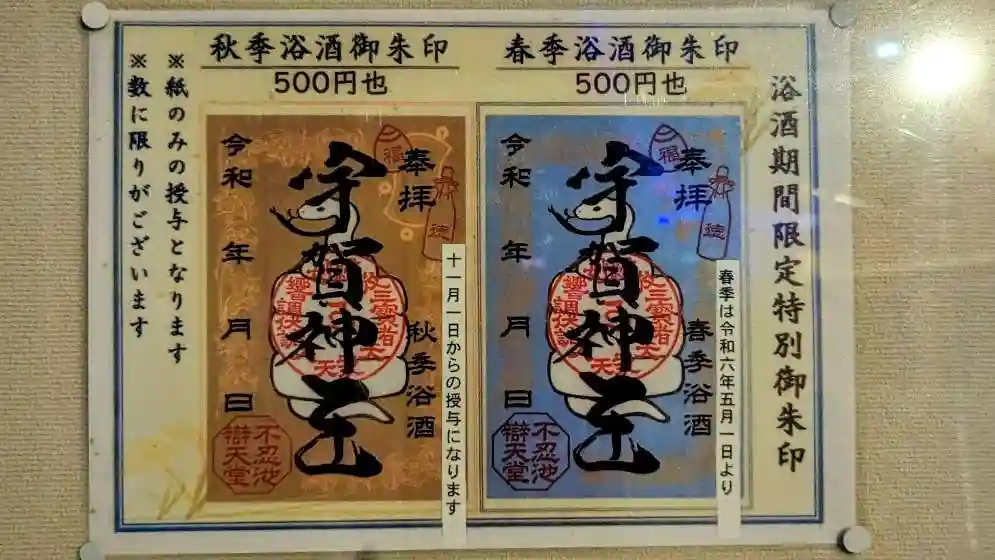 浴酒期間限定特別御朱印
春季浴酒御朱印
500円也
奉拝
春季浴酒
宇賀神王
令和 年 月 日
福
徳
不忍池
辯天堂
春季は令和六年五月一日より
秋季浴酒御朱印
500円也
奉拝
秋季浴酒
宇賀神王
令和 年 月 日
福
徳
不忍池
辯天堂
十一月一日からの授与になります
※紙のみの授与となります
※数に限りがございます